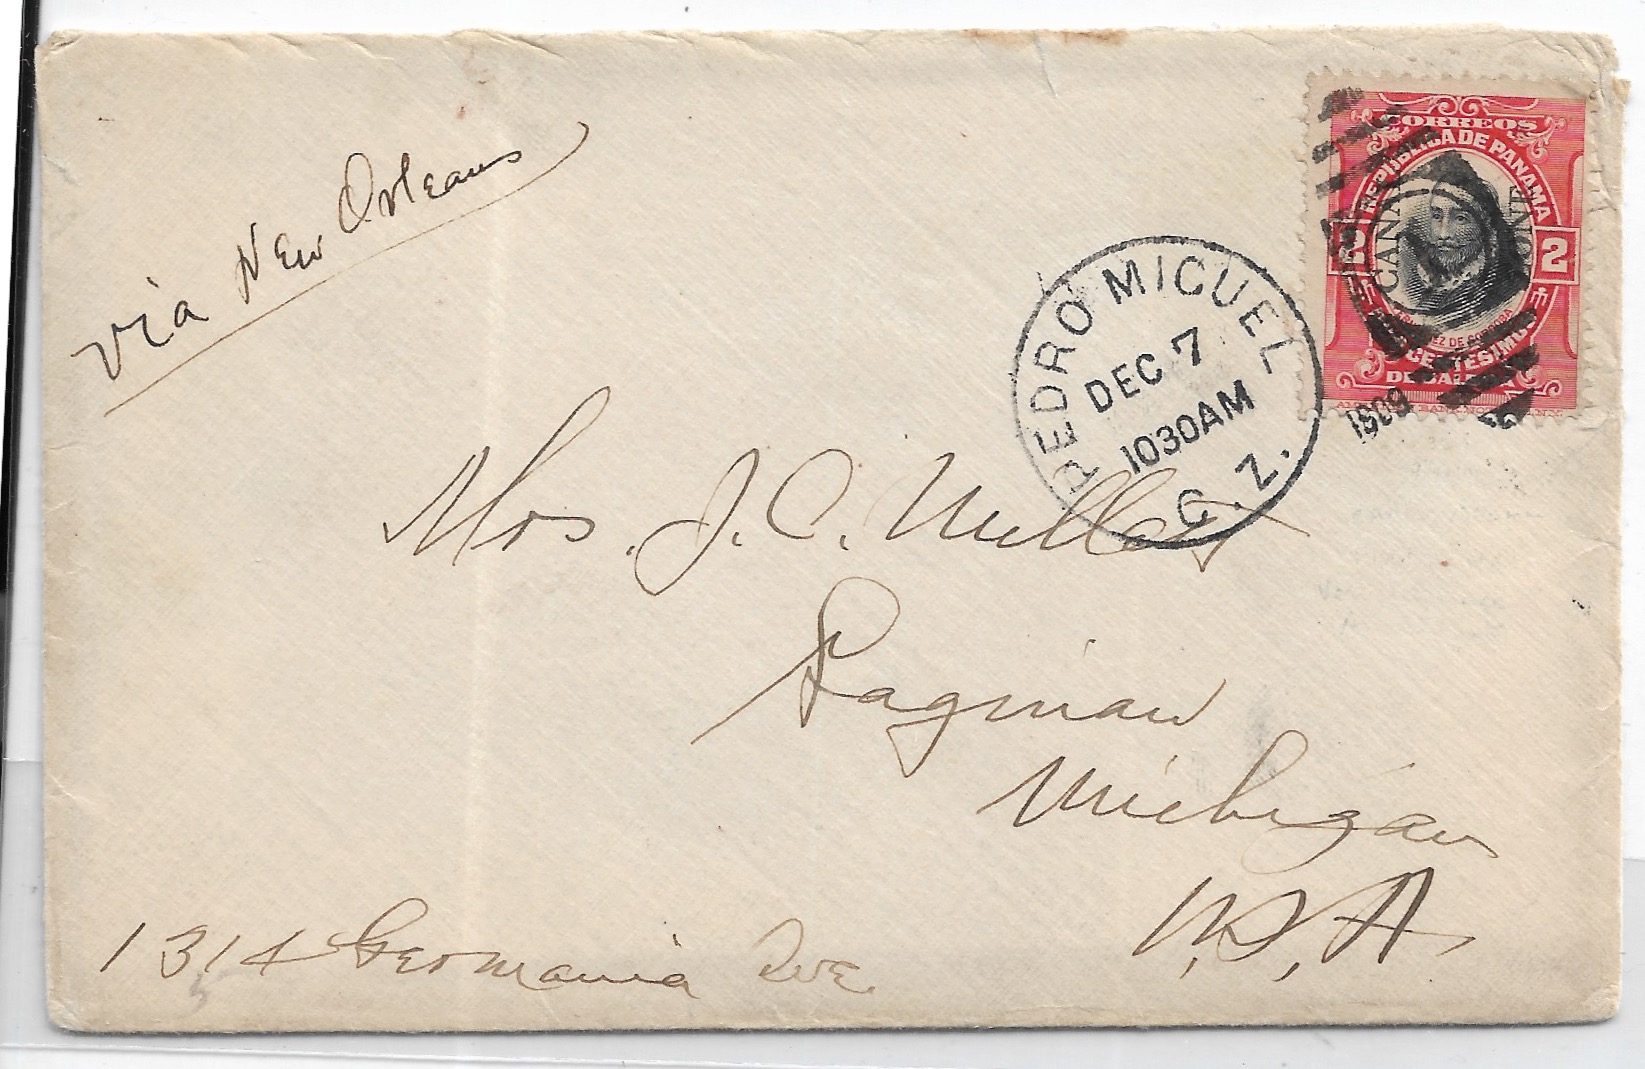 via New Orleans
CORREOS
REPUBLICA DE PANAMA
CANAL
2 2
CENTESIMOS
DE BALBOA
PEDRO MIGUEL
DEC 7
1030AM
C. Z.
1909
Mrs. J. C. Millett
Saginaw
Michigan
U.S.A.
1314 Germania Ave
5